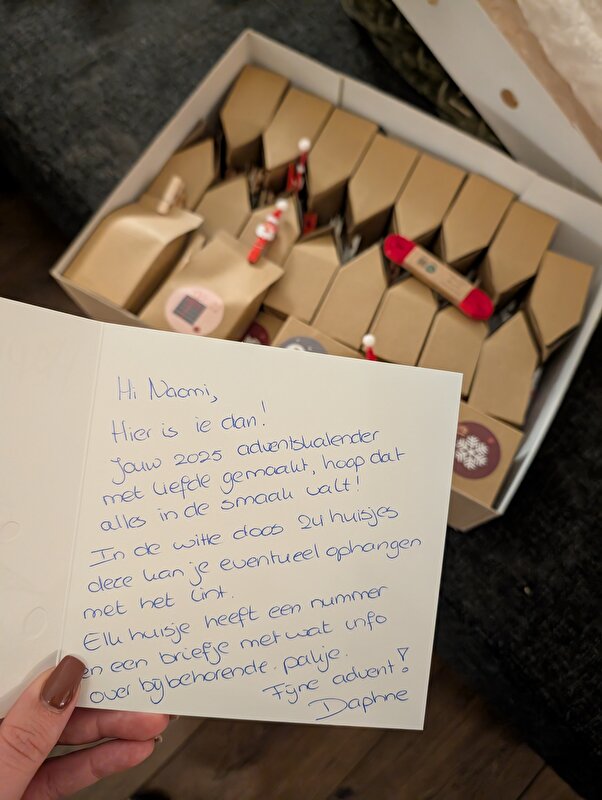 Hi Naomi,
Hier is ie dan!
Jouw 2025 adventskalender
met liefde gemaakt, hoop dat
alles in de smaak valt!
In de witte doos 24 huisjes
deze kan je eventueel ophangen
met het lint.
Elk huisje heeft een nummer
en een briefje met wat info
over bijbehorende pakje.
Fijne advent!
Daphne